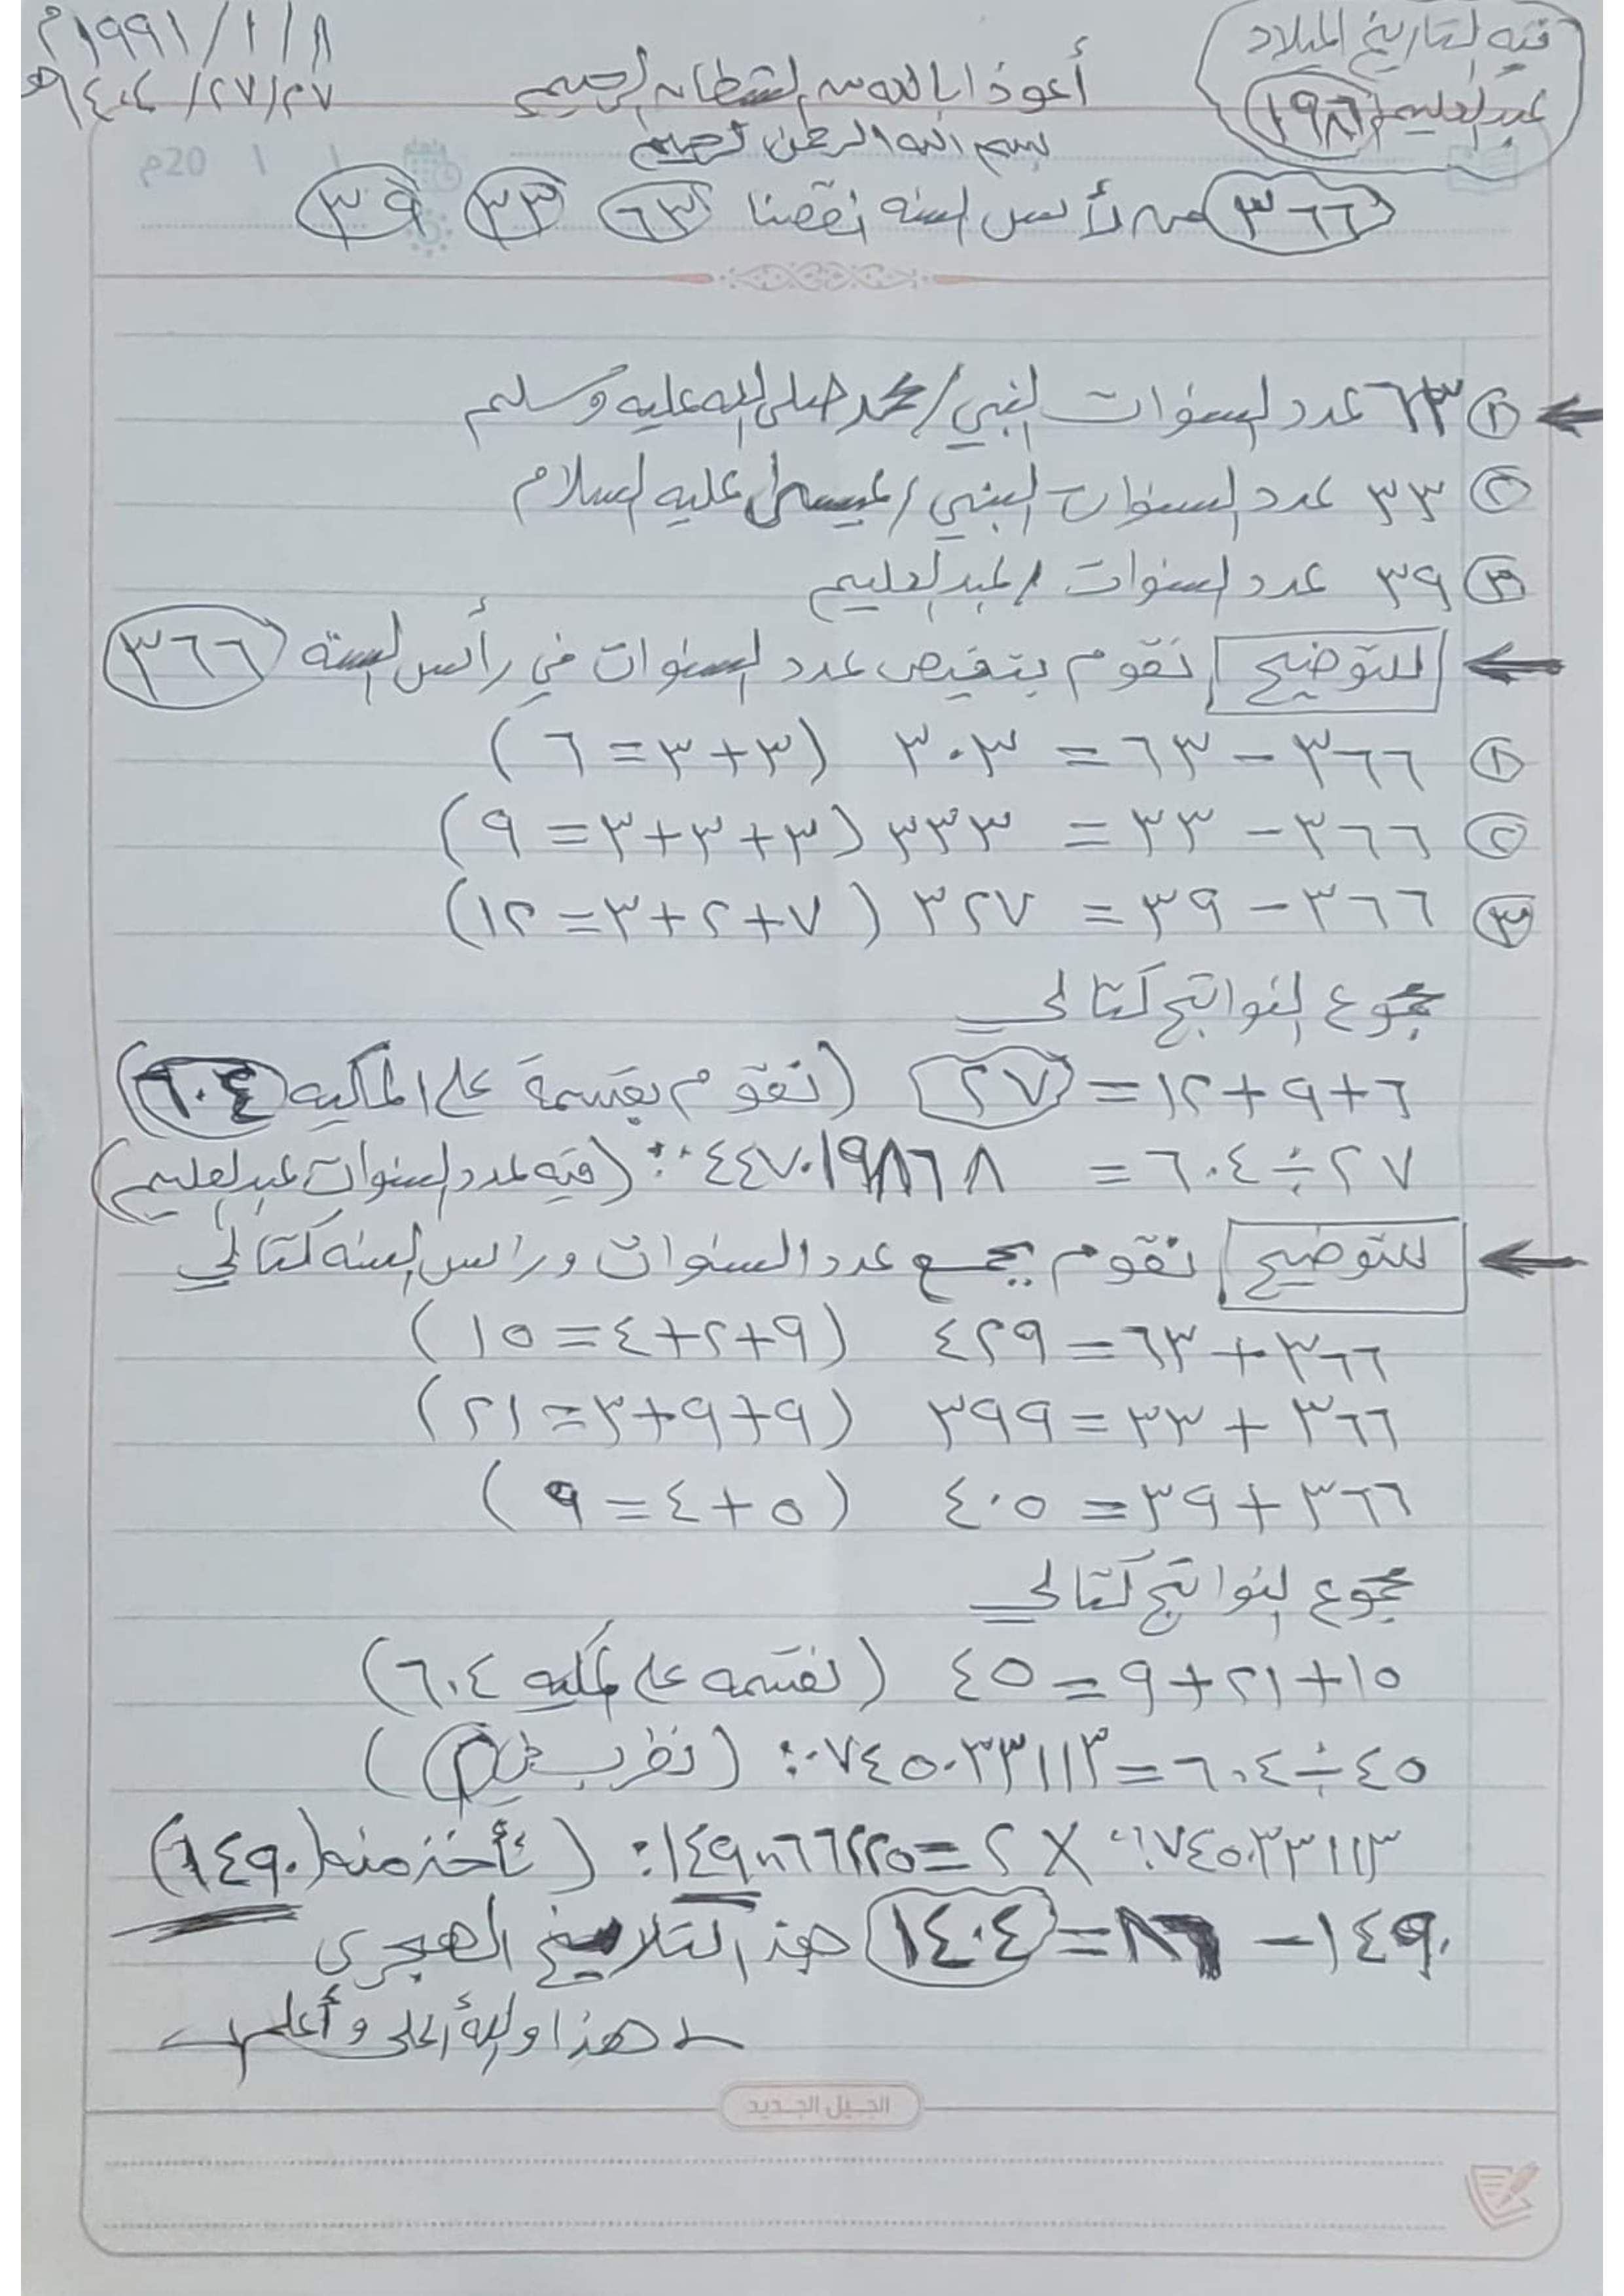 فيه لتاريخ الميلاد
عبدالعليم ١٩٨٦
١ / ١ / ١٩٩١م
٢٧/ ٢٧/ ١٤٠٤هـ
أعوذ بالله من الشيطان الرجيم
بسم الله الرحمن الرحيم
١ ١ 20م
٣٦٦ من رأس السنه نقصنا ٦٣ ٣٣ ٣٩
١ ٦٣ عدد السنوات النبي / محمد صلى الله عليه وسلم
٢ ٣٣ عدد السنوات النبي / عيسى عليه السلام
٣ ٣٩ عدد السنوات / عبدالعليم
للتوضيح نقوم بتقيص عدد السنوات في رأس السنة ٣٦٦
١ ٣٦٦ – ٦٣ = ٣٠٣ (٣+٣=٦)
٢ ٣٦٦ – ٣٣ = ٣٣٣ (٣+٣+٣=٩)
٣ ٣٦٦ – ٣٩ = ٣٢٧ (٧+٢+٣=١٢)
مجموع النواتج كتالي
٦+٩+١٢= ٢٧ (نقوم بقسمة على المكيه ٦٠٤)
٢٧÷٦٠٤ = ٤٤٧٠١٩٨٦٨ (فيه عدد السنوات عبدالعليم)
للتوضيح نقوم بجمع عدد السنوات ورأس السنه كتالي
٣٦٦+٦٣=٤٢٩ (٩+٢+٤=١٥)
٣٦٦+٣٣=٣٩٩ (٩+٩+٣=٢١)
٣٦٦+٣٩=٤٠٥ (٥+٤=٩)
مجموع النواتج كتالي
١٥+٢١+٩=٤٥ (نقسمه على المكيه ٦٠٤)
٤٥÷٦٠٤=٠٧٤٥٠٣٣١١٣ (نضرب في ٢)
٠٧٤٥٠٣٣١١٣ × ٢= (نأخذ منه ١٤٩٠)
١٤٩٠ – ٨٦=١٤٠٤ هذ التلاريخ الهجري
هذا والله أعلى وأعلم
الجيل الجديد